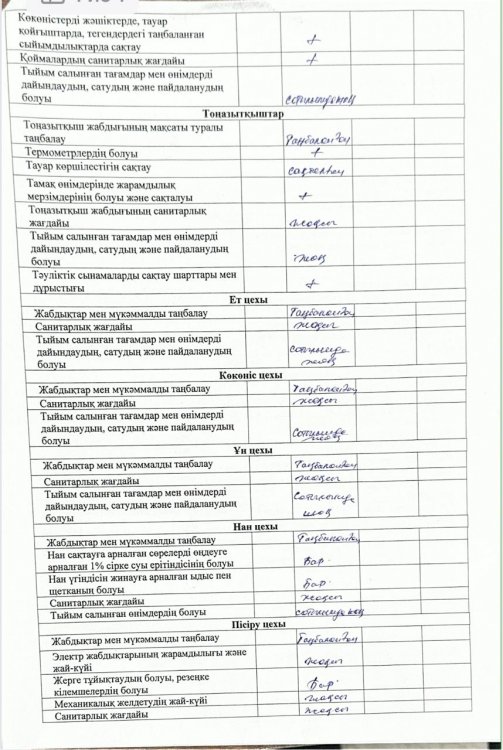 Көкөністерді жәшіктерде, тауар
қойғыштарда, тегендердегі таңбаланған
сыйымдылықтарда сақтау +
Қоймалардың санитарлық жағдайы +
Тыйым салынған тағамдар мен өнімдерді
дайындаудың, сатудың және пайдаланудың
болуы
Тоңазытқыштар
Тоңазытқыш жабдығының мақсаты туралы
таңбалау Таңбаланған
Термометрлердің болуы +
Тауар көршілестігін сақтау сақталған
Тамақ өнімдерінде жарамдылық
мерзімдерінің болуы және сақталуы +
Тоңазытқыш жабдығының санитарлық
жағдайы жақсы
Тыйым салынған тағамдар мен өнімдерді
дайындаудың, сатудың және пайдаланудың
болуы жоқ
Тәуліктік сынамаларды сақтау шарттары мен
дұрыстығы +
Ет цехы
Жабдықтар мен мүкәммалды таңбалау Таңбаланған
Санитарлық жағдайы жақсы
Тыйым салынған тағамдар мен өнімдерді
дайындаудың, сатудың және пайдаланудың
болуы жоқ
Көкөніс цехы
Жабдықтар мен мүкәммалды таңбалау Таңбаланған
Санитарлық жағдайы жақсы
Тыйым салынған тағамдар мен өнімдерді
дайындаудың, сатудың және пайдаланудың
болуы жоқ
Ұн цехы
Жабдықтар мен мүкәммалды таңбалау Таңбаланған
Санитарлық жағдайы жақсы
Тыйым салынған тағамдар мен өнімдерді
дайындаудың, сатудың және пайдаланудың
болуы жоқ
Нан цехы
Жабдықтар мен мүкәммалды таңбалау Таңбаланған
Нан сақтауға арналған сөрелерді өңдеуге
арналған 1% сірке суы ерітіндісінің болуы Бар
Нан үгіндісін жинауға арналған ыдыс пен
щетканың болуы Бар
Санитарлық жағдайы жақсы
Тыйым салынған өнімдердің болуы
Пісіру цехы
Жабдықтар мен мүкәммалды таңбалау Таңбаланған
Электр жабдықтарының жарамдылығы және
жай-күйі жақсы
Жерге тұйықтаудың болуы, резеңке
кілемшелердің болуы Бар
Механикалық желдетудің жай-күйі жақсы
Санитарлық жағдайы жақсы